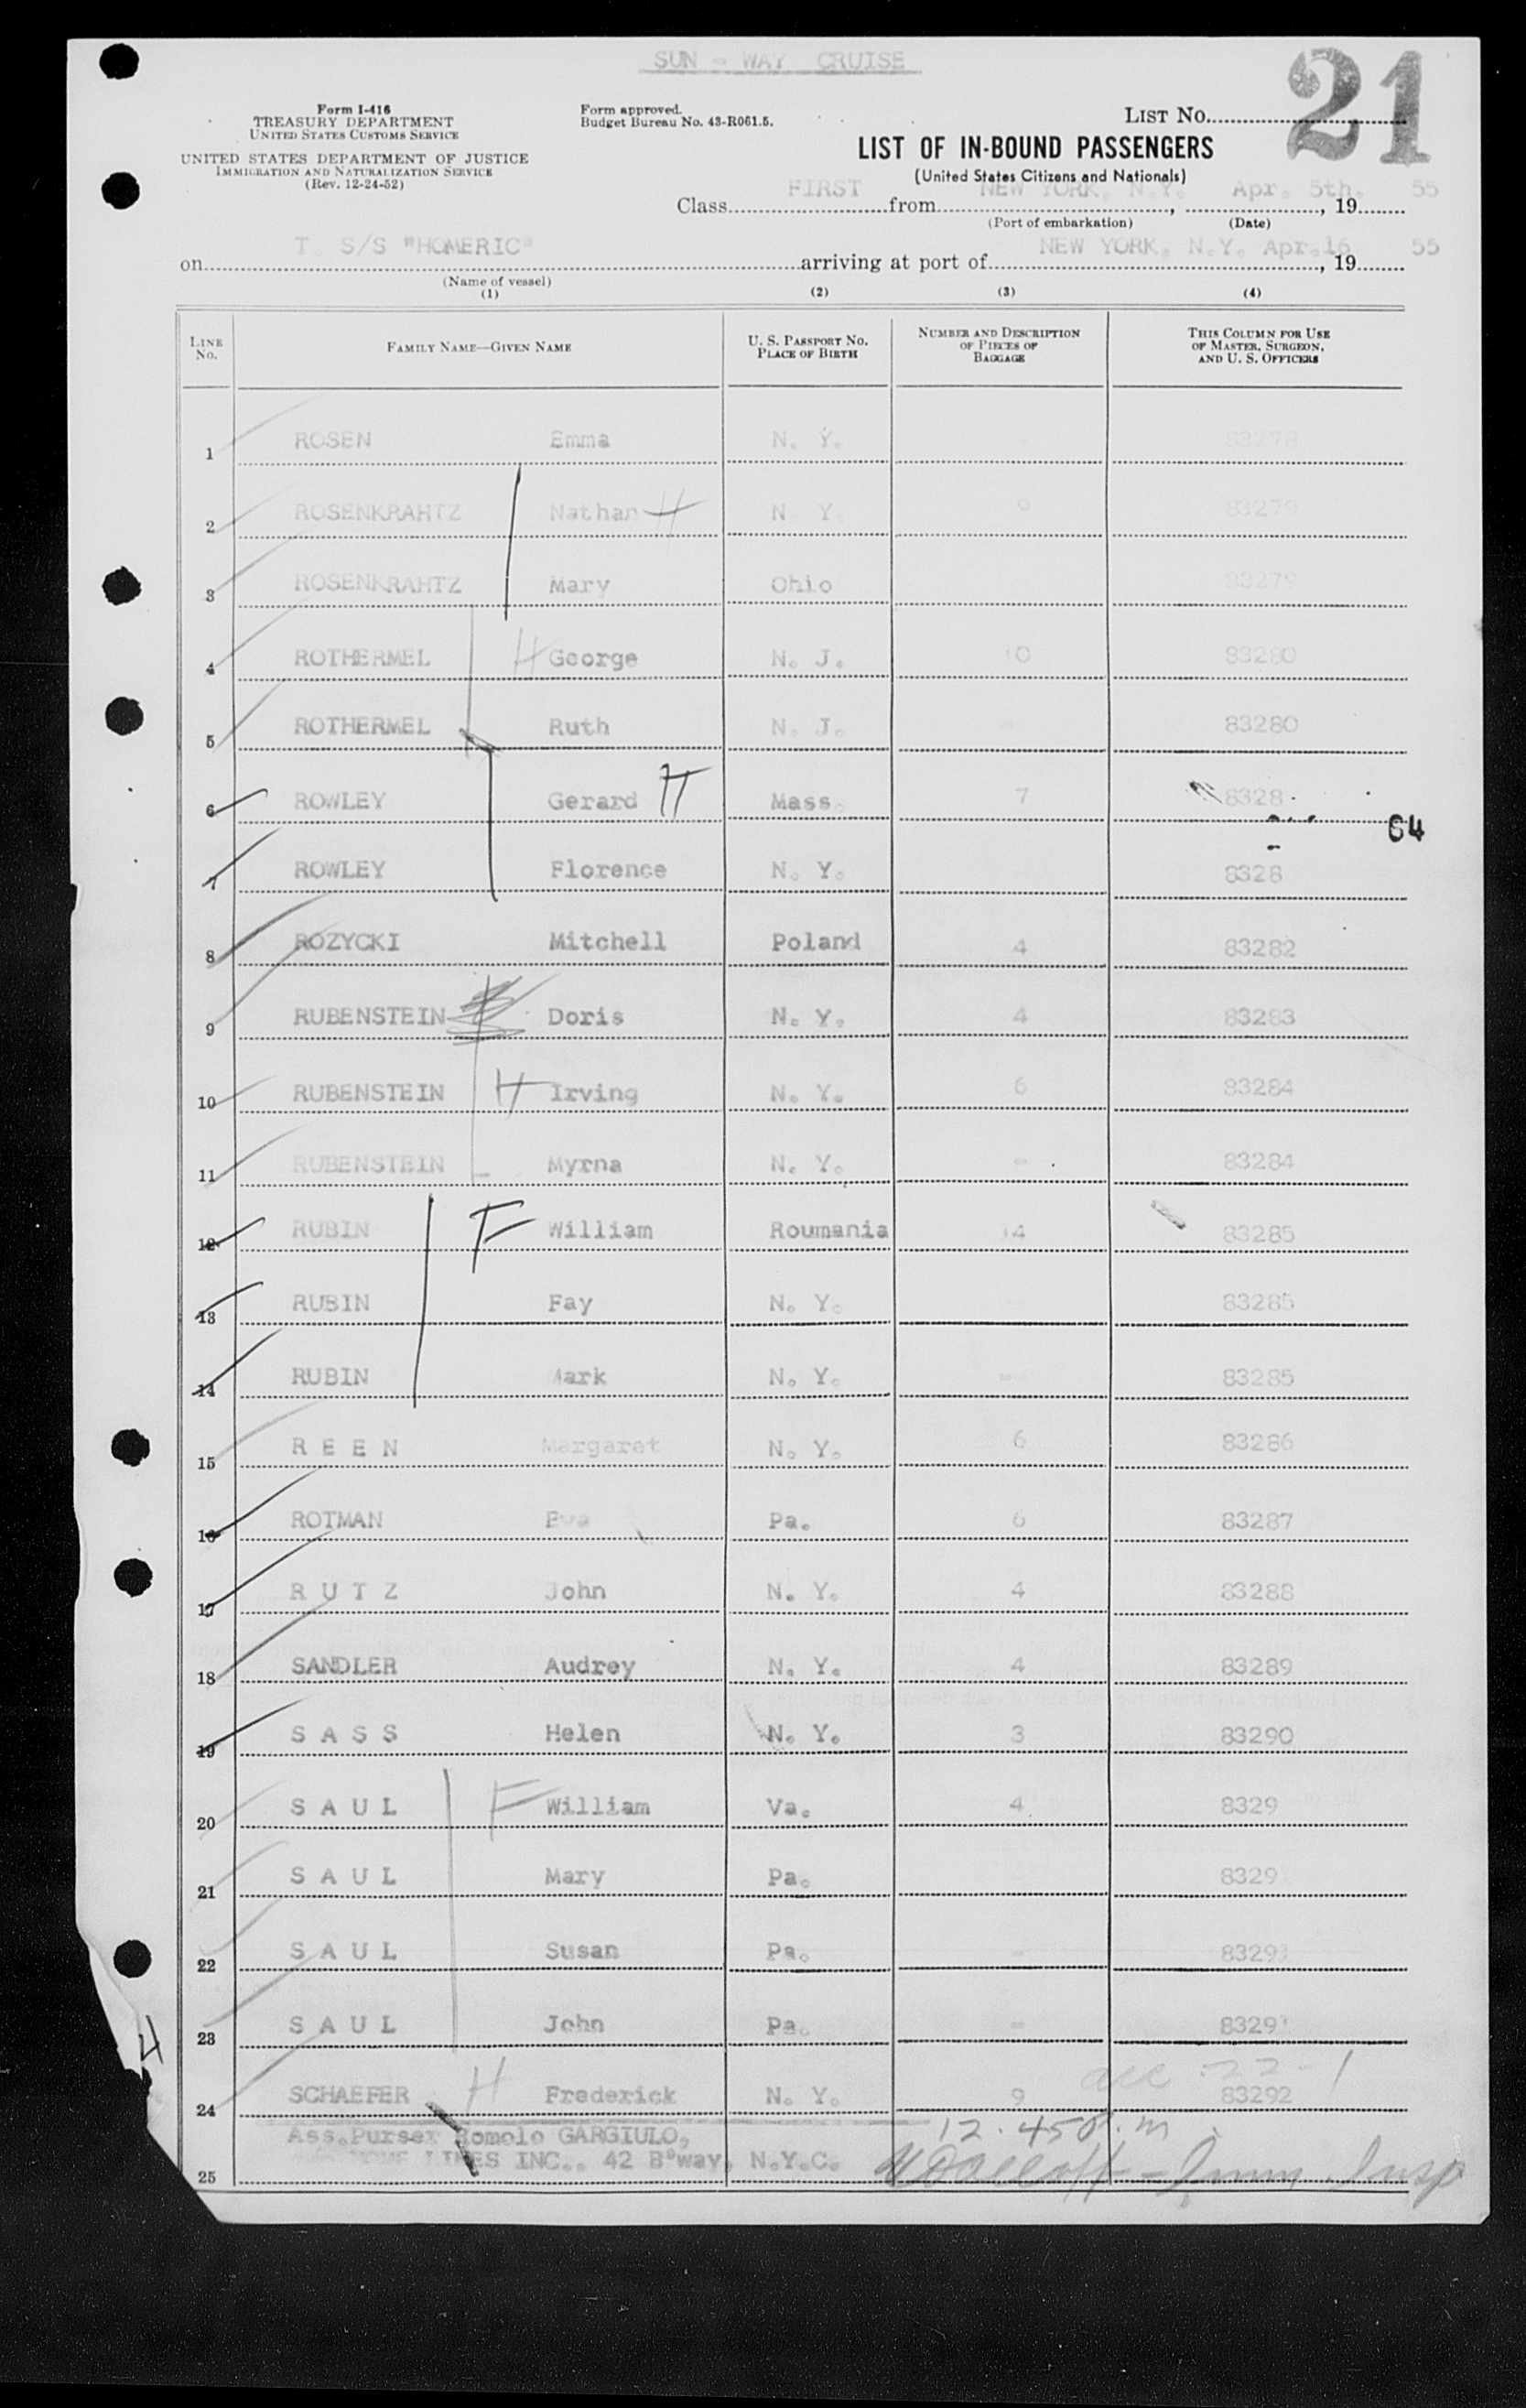 SUN - WAY CRUISE
21
Form I-416
TREASURY DEPARTMENT
UNITED STATES CUSTOMS SERVICE
UNITED STATES DEPARTMENT OF JUSTICE
IMMIGRATION AND NATURALIZATION SERVICE
(Rev. 12-24-52)
Form approved.
Budget Bureau No. 43-R061.5.
LIST No.
LIST OF IN-BOUND PASSENGERS
(United States Citizens and Nationals)
Class FIRST from NEW YORK, N.Y. , Apr. 5th. , 19 55
(Port of embarkation) (Date)
on T. S/S "HOMERIC" arriving at port of NEW YORK, N.Y. Apr.16 , 19 55
(Name of vessel)
(1) (2) (3) (4)
LINE No. FAMILY NAME—GIVEN NAME U. S. PASSPORT No. PLACE OF BIRTH NUMBER AND DESCRIPTION OF PIECES OF BAGGAGE THIS COLUMN FOR USE OF MASTER, SURGEON, AND U. S. OFFICERS
1 ROSEN Emma N. Y. 83278
2 ROSENKRAHTZ Nathan H N Y 83279
3 ROSENKRAHTZ Mary Ohio 83279
4 ROTHERMEL H George N. J. 10 83280
5 ROTHERMEL Ruth N. J. 83280
6 ROWLEY Gerard H Mass. 7 8328
64
7 ROWLEY Florence N. Y. 8328
8 ROZYCKI Mitchell Poland 4 83282
9 RUBENSTEIN Doris N. Y. 4 83283
10 RUBENSTEIN H Irving N. Y. 6 83284
11 RUBENSTEIN Myrna N. Y. - 83284
12 RUBIN F William Roumania 14 83285
13 RUBIN Fay N. Y. 83285
14 RUBIN Mark N. Y. - 83285
15 R E E N Margaret N. Y. 6 83286
16 ROTMAN Eva Pa. 6 83287
17 R U T Z John N. Y. 4 83288
18 SANDLER Audrey N. Y. 4 83289
19 S A S S Helen N. Y. 3 83290
20 S A U L F William Va. 4 8329
21 S A U L Mary Pa. 8329
22 S A U L Susan Pa. - 8329
23 S A U L John Pa. - 8329
24 SCHAEFER H Frederick N. Y. 9 83292
Ass.Purser Romolo GARGIULO,
12.45 p.m
25 HOME LINES INC.. 42 B°way, N.Y.C.
Imm. Insp